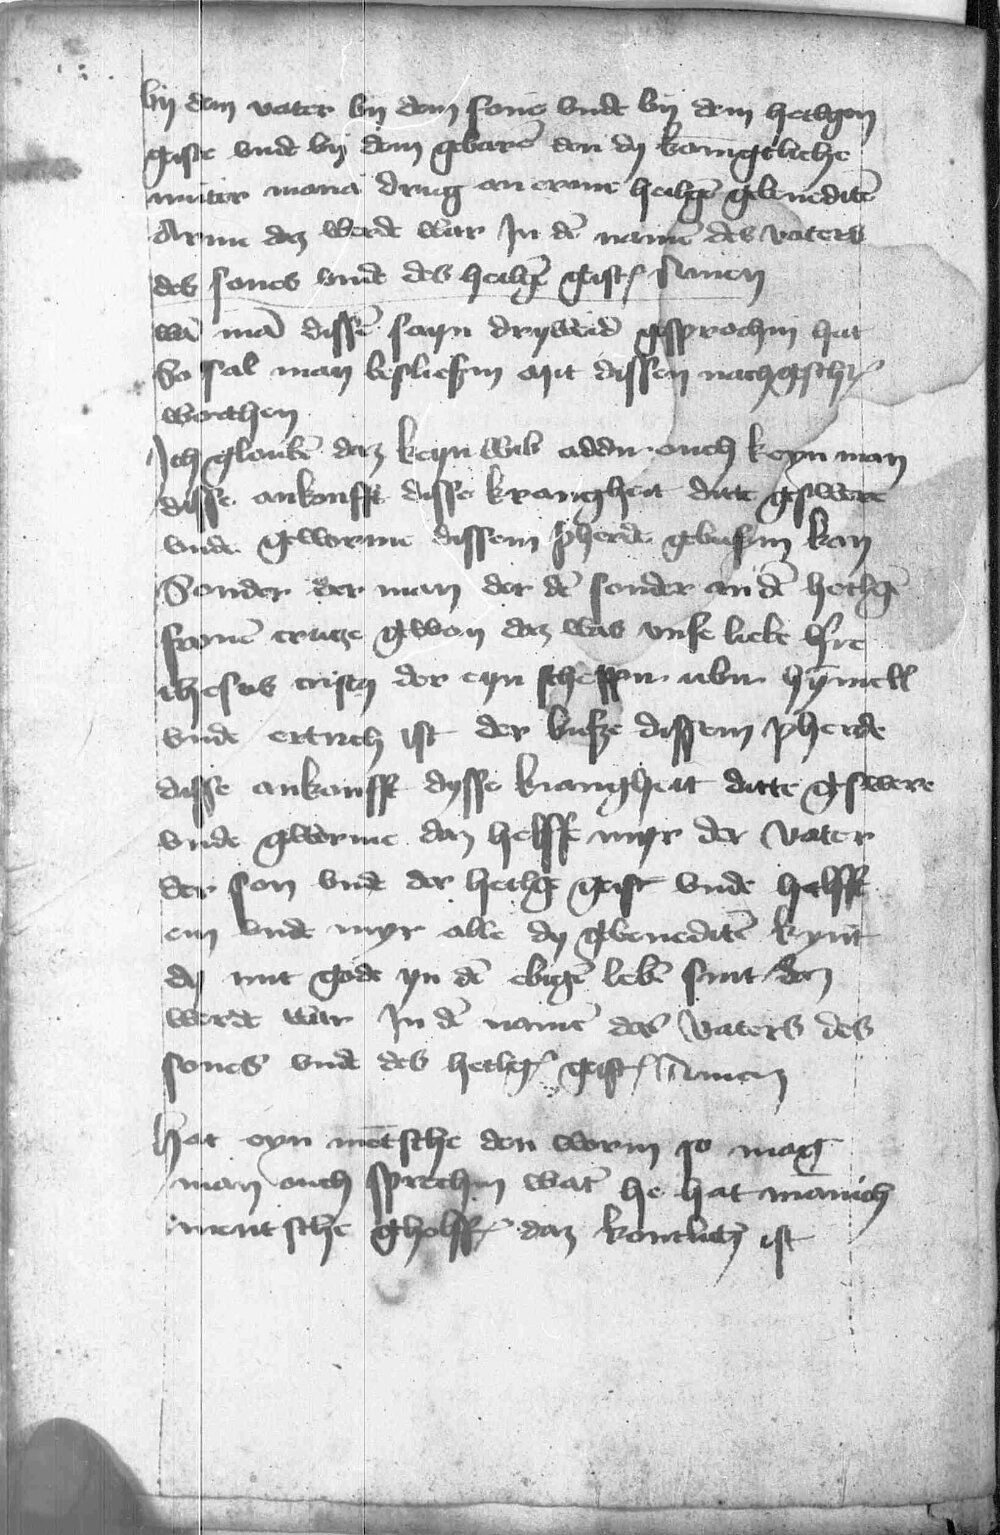 bij dem vater bij dem sone vnde bij dem heilgen
geiste vnde bij dem gebare den dy konigliche
muter maria drug an erme heilgē gebeneditē
Arme daz werde war In dē namē des vaters
des sones vnde des heilgē geist Amen
wā mā dissē seyn drywerb gesprochin hat
So sal man besliessin mit dissen nachgeschr
worthen
Ich gloubē daz keyn wib addir ouch keyn man
disse ankonfft disse krangheit ditte geswere
vnde geworme dissem pherde gebussin kan
Sonder der man der dē sonder an dē heilgē
fronē cruze gewon daz was vnse liebe hre
ihesus cristy der eyn scheppir ubir hȳmell
vnde ertrich ist der busze dissem pherde
disse ankonfft dysse krangheit ditte geswere
vnde geworme daz helffe myr der vater
der son vnde der heilge geist vnde helffe
em vnde myr alle dy gebeneditē kynt
dy mit gode yn dē ebigē lebē sint daz
werde war In dē namē des vaters des
sones vnde des heilg geist Amen
Hat eyn mētsche den worm so mag
man ouch sprechin wāt he hat mānich
mentsche geholff daz kontlich ist